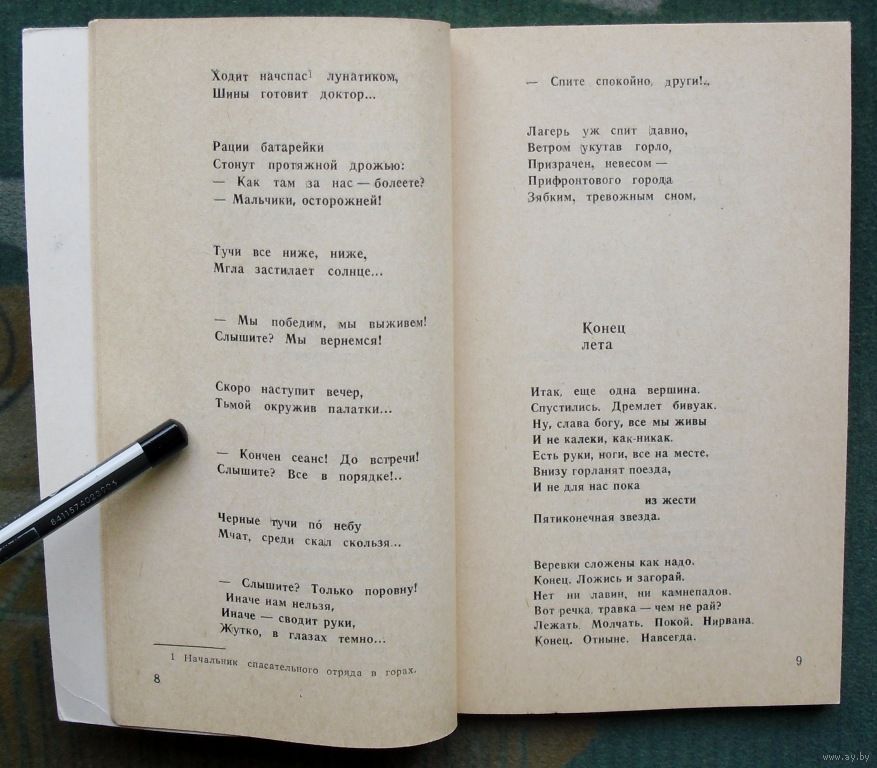 Ходит начспас¹ лунатиком,
Шины готовит доктор...
Рации батарейки
Стонут протяжной дрожью:
— Как там за нас — болеете?
— Мальчики, осторожней!
Тучи все ниже, ниже,
Мгла застилает солнце...
— Мы победим, мы выживем!
Слышите? Мы вернемся!
Скоро наступит вечер,
Тьмой окружив палатки...
— Кончен сеанс! До встречи!
Слышите? Все в порядке!..
Черные тучи по́ небу
Мчат, среди скал скользя...
— Слышите? Только поровну!
Иначе нам нельзя,
Иначе — сводит руки,
Жутко, в глазах темно...
1 Начальник спасательного отряда в горах.
8
— Спите спокойно, други!..
Лагерь уж спит давно,
Ветром укутав горло,
Призрачен, невесом —
Прифронтового города
Зябким, тревожным сном.
Конец
лета
Итак, еще одна вершина.
Спустились. Дремлет бивуак.
Ну, слава богу, все мы живы
И не калеки, как-никак.
Есть руки, ноги, все на месте.
Внизу горланят поезда,
И не для нас пока
из жести
Пятиконечная звезда.
Веревки сложены как надо.
Конец. Ложись и загорай.
Нет ни лавин, ни камнепадов.
Вот речка, травка — чем не рай?
Лежать. Молчать. Покой. Нирвана.
Конец. Отныне. Навсегда.
9
8411574023995
www.ay.by